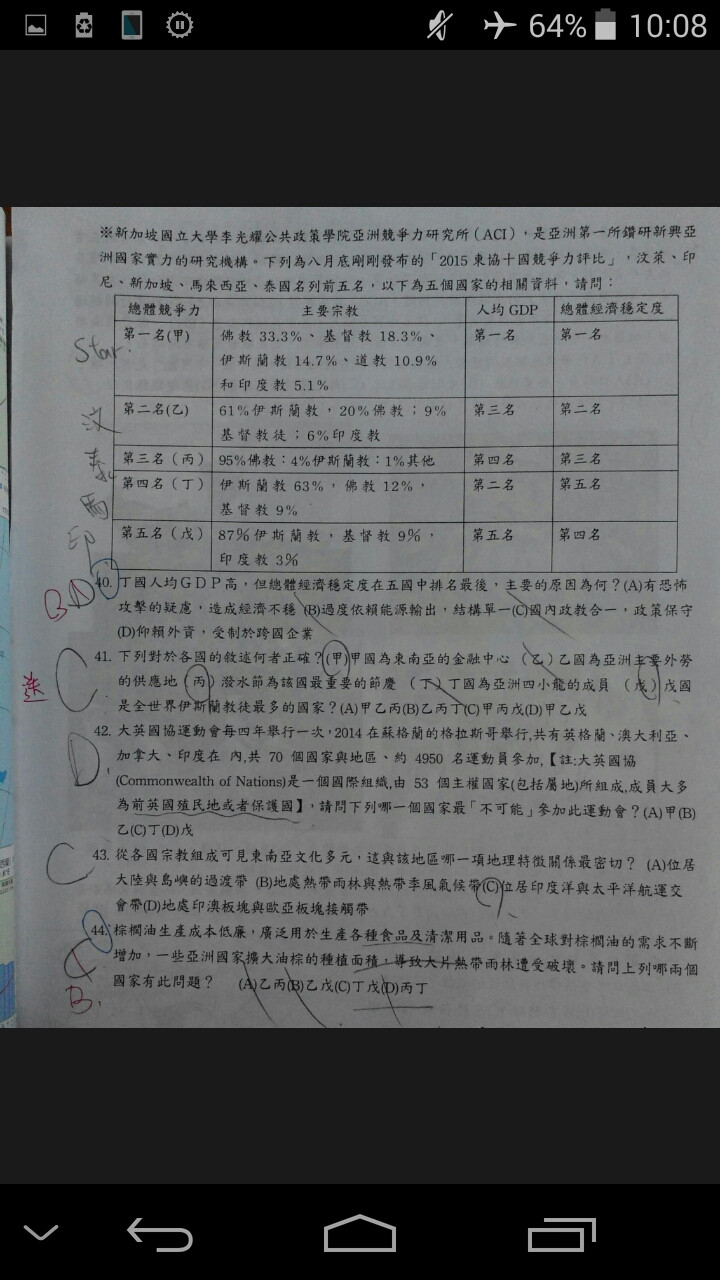 64% 10:08
※新加坡國立大學李光耀公共政策學院亞洲競爭力研究所(ACI),是亞洲第一所鑽研新興亞
洲國家實力的研究機構。下列為八月底剛剛發布的「2015東協十國競爭力評比」,汶萊、印
尼、新加坡、馬來西亞、泰國名列前五名,以下為五個國家的相關資料,請問:
總體競爭力 主要宗教 人均 GDP 總體經濟穩定度
第一名(甲) 佛教 33.3%、基督教 18.3%、 第一名 第一名
伊斯蘭教 14.7%、道教 10.9%
和印度教 5.1%
第二名(乙) 61%伊斯蘭教,20%佛教;9% 第三名 第二名
基督教徒;6%印度教
第三名(丙) 95%佛教:4%伊斯蘭教:1%其他 第四名 第三名
第四名(丁) 伊斯蘭教 63%,佛教 12%, 第二名 第五名
基督教 9%
第五名(戊) 87%伊斯蘭教,基督教 9%, 第五名 第四名
印度教 3%
Star.
汶
泰
馬
印
BD
40. 丁國人均GDP高,但總體經濟穩定度在五國中排名最後,主要的原因為何?(A)有恐怖
攻擊的疑慮,造成經濟不穩 (B)過度依賴能源輸出,結構單一(C)國內政教合一,政策保守
(D)仰賴外資,受制於跨國企業
C
41. 下列對於各國的敘述何者正確?(甲)甲國為東南亞的金融中心 (乙)乙國為亞洲主要外勞
的供應地 (丙)潑水節為該國最重要的節慶 (丁)丁國為亞洲四小龍的成員 (戊)戊國
是全世界伊斯蘭教徒最多的國家?(A)甲乙丙(B)乙丙丁(C)甲丙戊(D)甲乙戊
D
42. 大英國協運動會每四年舉行一次,2014 在蘇格蘭的格拉斯哥舉行,共有英格蘭、澳大利亞、
加拿大、印度在 內,共 70 個國家與地區、約 4950 名運動員參加,【註:大英國協
(Commonwealth of Nations)是一個國際組織,由 53 個主權國家(包括屬地)所組成,成員大多
為前英國殖民地或者保護國】,請問下列哪一個國家最「不可能」參加此運動會?(A)甲(B)
乙(C)丁(D)戊
C
43. 從各國宗教組成可見東南亞文化多元,這與該地區哪一項地理特徵關係最密切? (A)位居
大陸與島嶼的過渡帶 (B)地處熱帶雨林與熱帶季風氣候帶(C)位居印度洋與太平洋航運交
會帶(D)地處印澳板塊與歐亞板塊接觸帶
B.
44. 棕櫚油生產成本低廉,廣泛用於生產各種食品及清潔用品。隨著全球對棕櫚油的需求不斷
增加,一些亞洲國家擴大油棕的種植面積,導致大片熱帶雨林遭受破壞。請問上列哪兩個
國家有此問題? (A)乙丙(B)乙戊(C)丁戊(D)丙丁